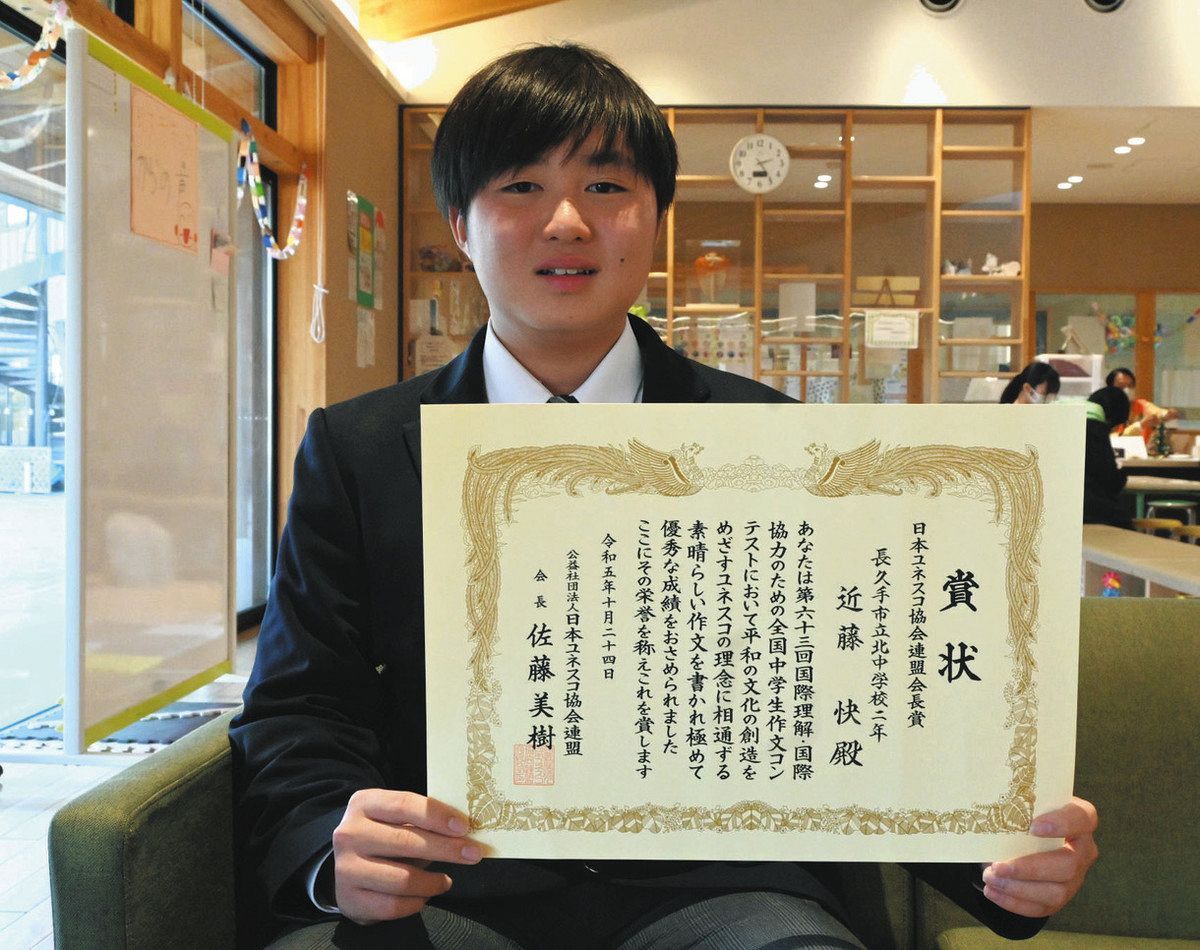 賞状
日本ユネスコ協会連盟会長賞
長久手市立北中学校二年
近藤 快 殿
あなたは第六十三回国際理解・国際
協力のための全国中学生作文コン
テストにおいて平和の文化の創造を
めざすユネスコの理念に相通ずる
素晴らしい作文を書かれ極めて
優秀な成績をおさめられました
ここにその栄誉を称えこれを賞します
令和五年十月二十四日
公益社団法人日本ユネスコ協会連盟
会長 佐藤美樹